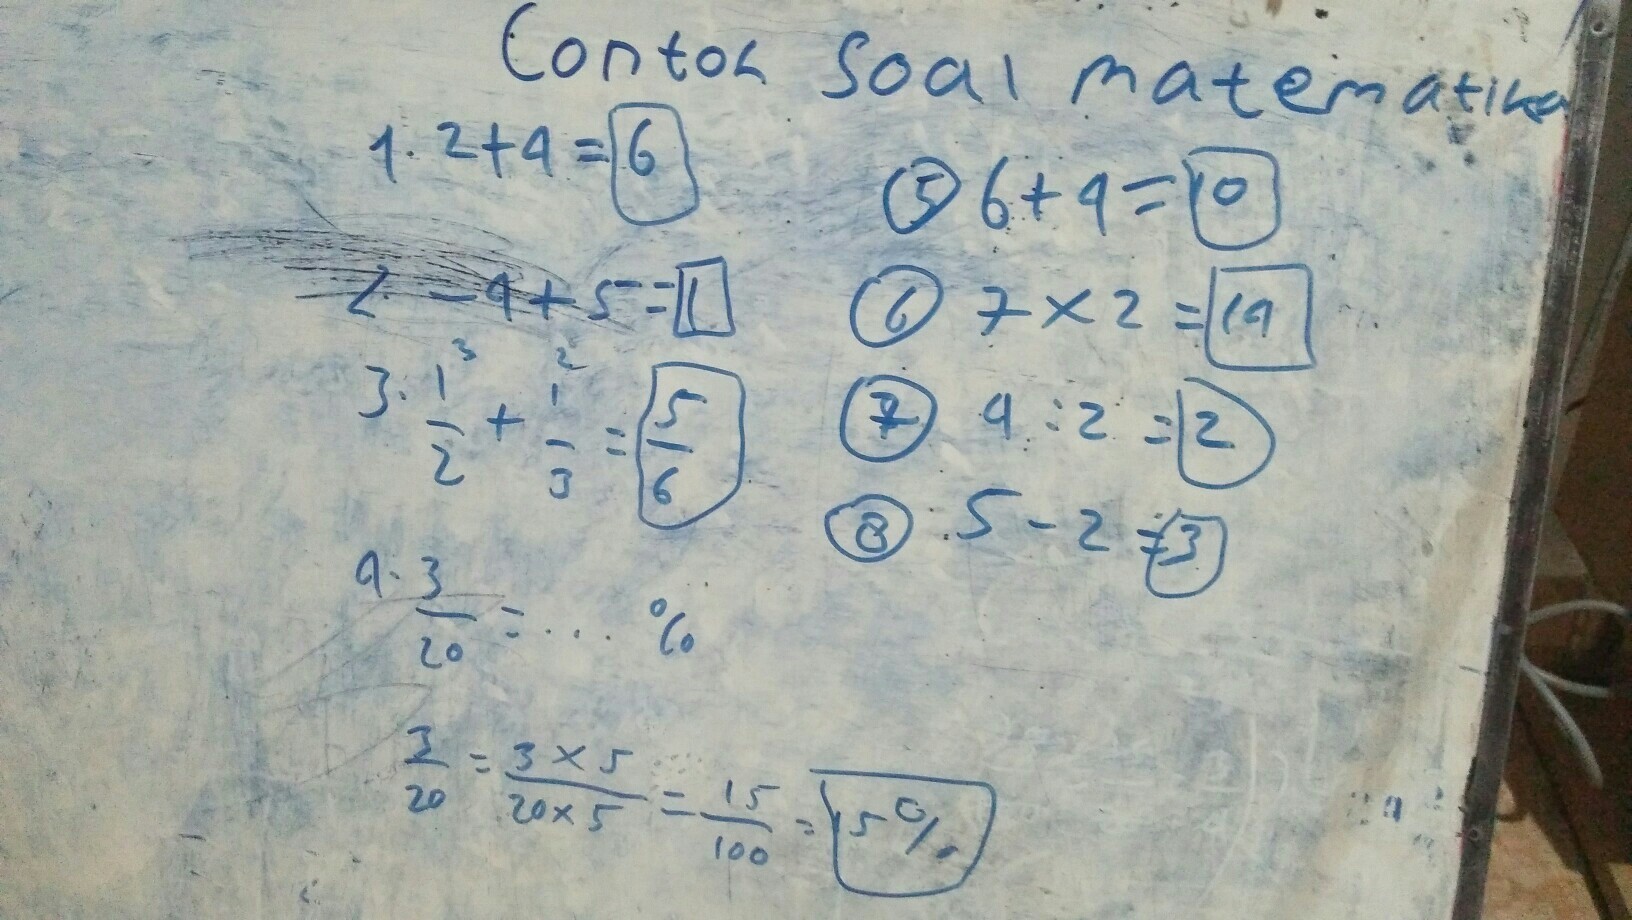 Contoh Soal matematika
1. 2+4=6
2. -4+5=1
3. 1/2 3 + 1/3 2 = 5/6
4. 3/20 = .... %
3/20 = 3×5/20×5 = 15/100 = 15%
5 6+4=10
6 7×2=14
7 4:2=2
8 5-2=3